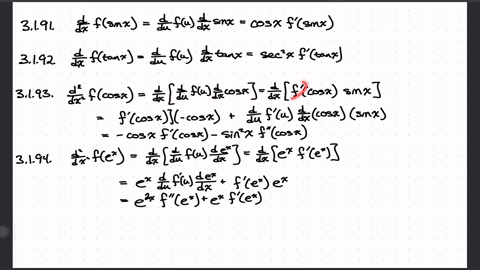 3.1.91. d/dx f(sinx) = d/du f(u) d/dx sinx = cosx f'(sinx)
3.1.92 d/dx f(tanx) = d/du f(u) d/dx tanx = sec²x f'(tanx)
3.1.93. d²/dx² f(cosx) = d/dx [d/du f(u) d/dx cosx] = d/dx [f'(cosx) sinx]
= f'(cosx)](-cosx) + d/du f'(u) d/dx (cosx) (sinx)
= -cosx f'(cosx) - sin²x f''(cosx)
3.1.94. d²/dx² f(eˣ) = d/dx [d/du f(u) deˣ/dx] = d/dx [eˣ f'(eˣ)]
= eˣ d/du f'(u) deˣ/dx + f'(eˣ) eˣ
= e²ˣ f''(eˣ) + eˣ f'(eˣ)